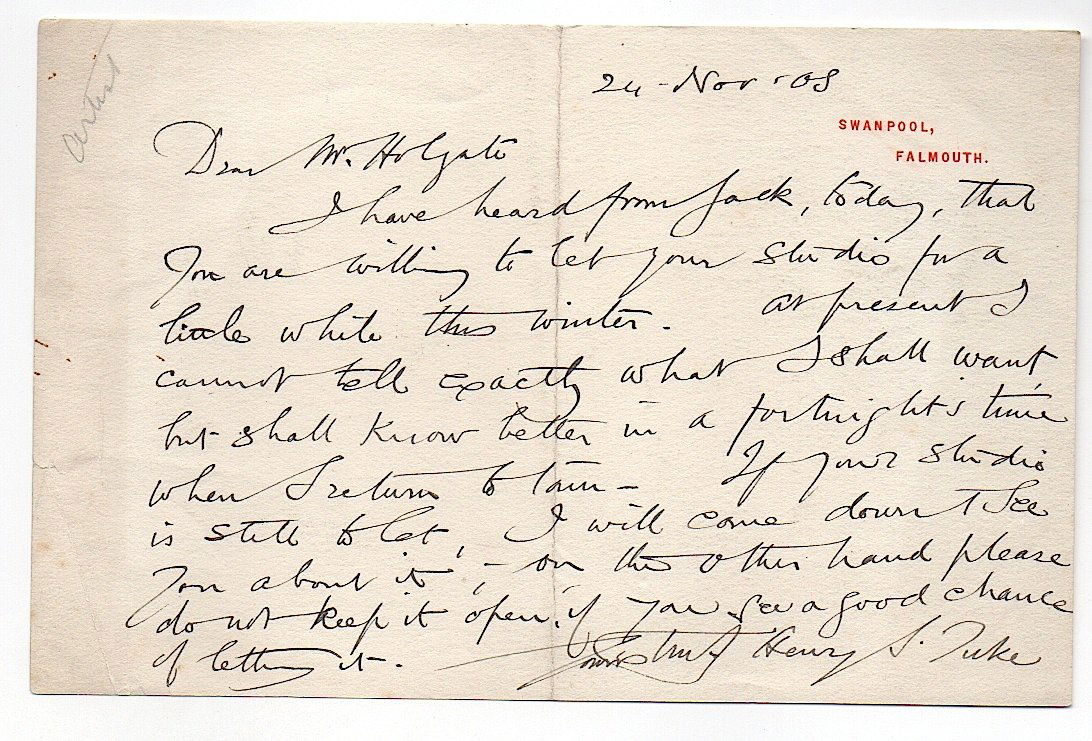 artist
24 - Nov - 08
SWANPOOL,
FALMOUTH.
Dear Mr. Holgate
I have heard from Jack, today, that
you are willing to let your studio for a
little while this winter. At present I
cannot tell exactly what I shall want,
but shall know better in a fortnight's time
when I return to town - If your studio
is still to let, I will come down & see
you about it; - on the other hand please
do not keep it open, if you see a good chance
of letting it.
Yours truly Henry S. Tuke